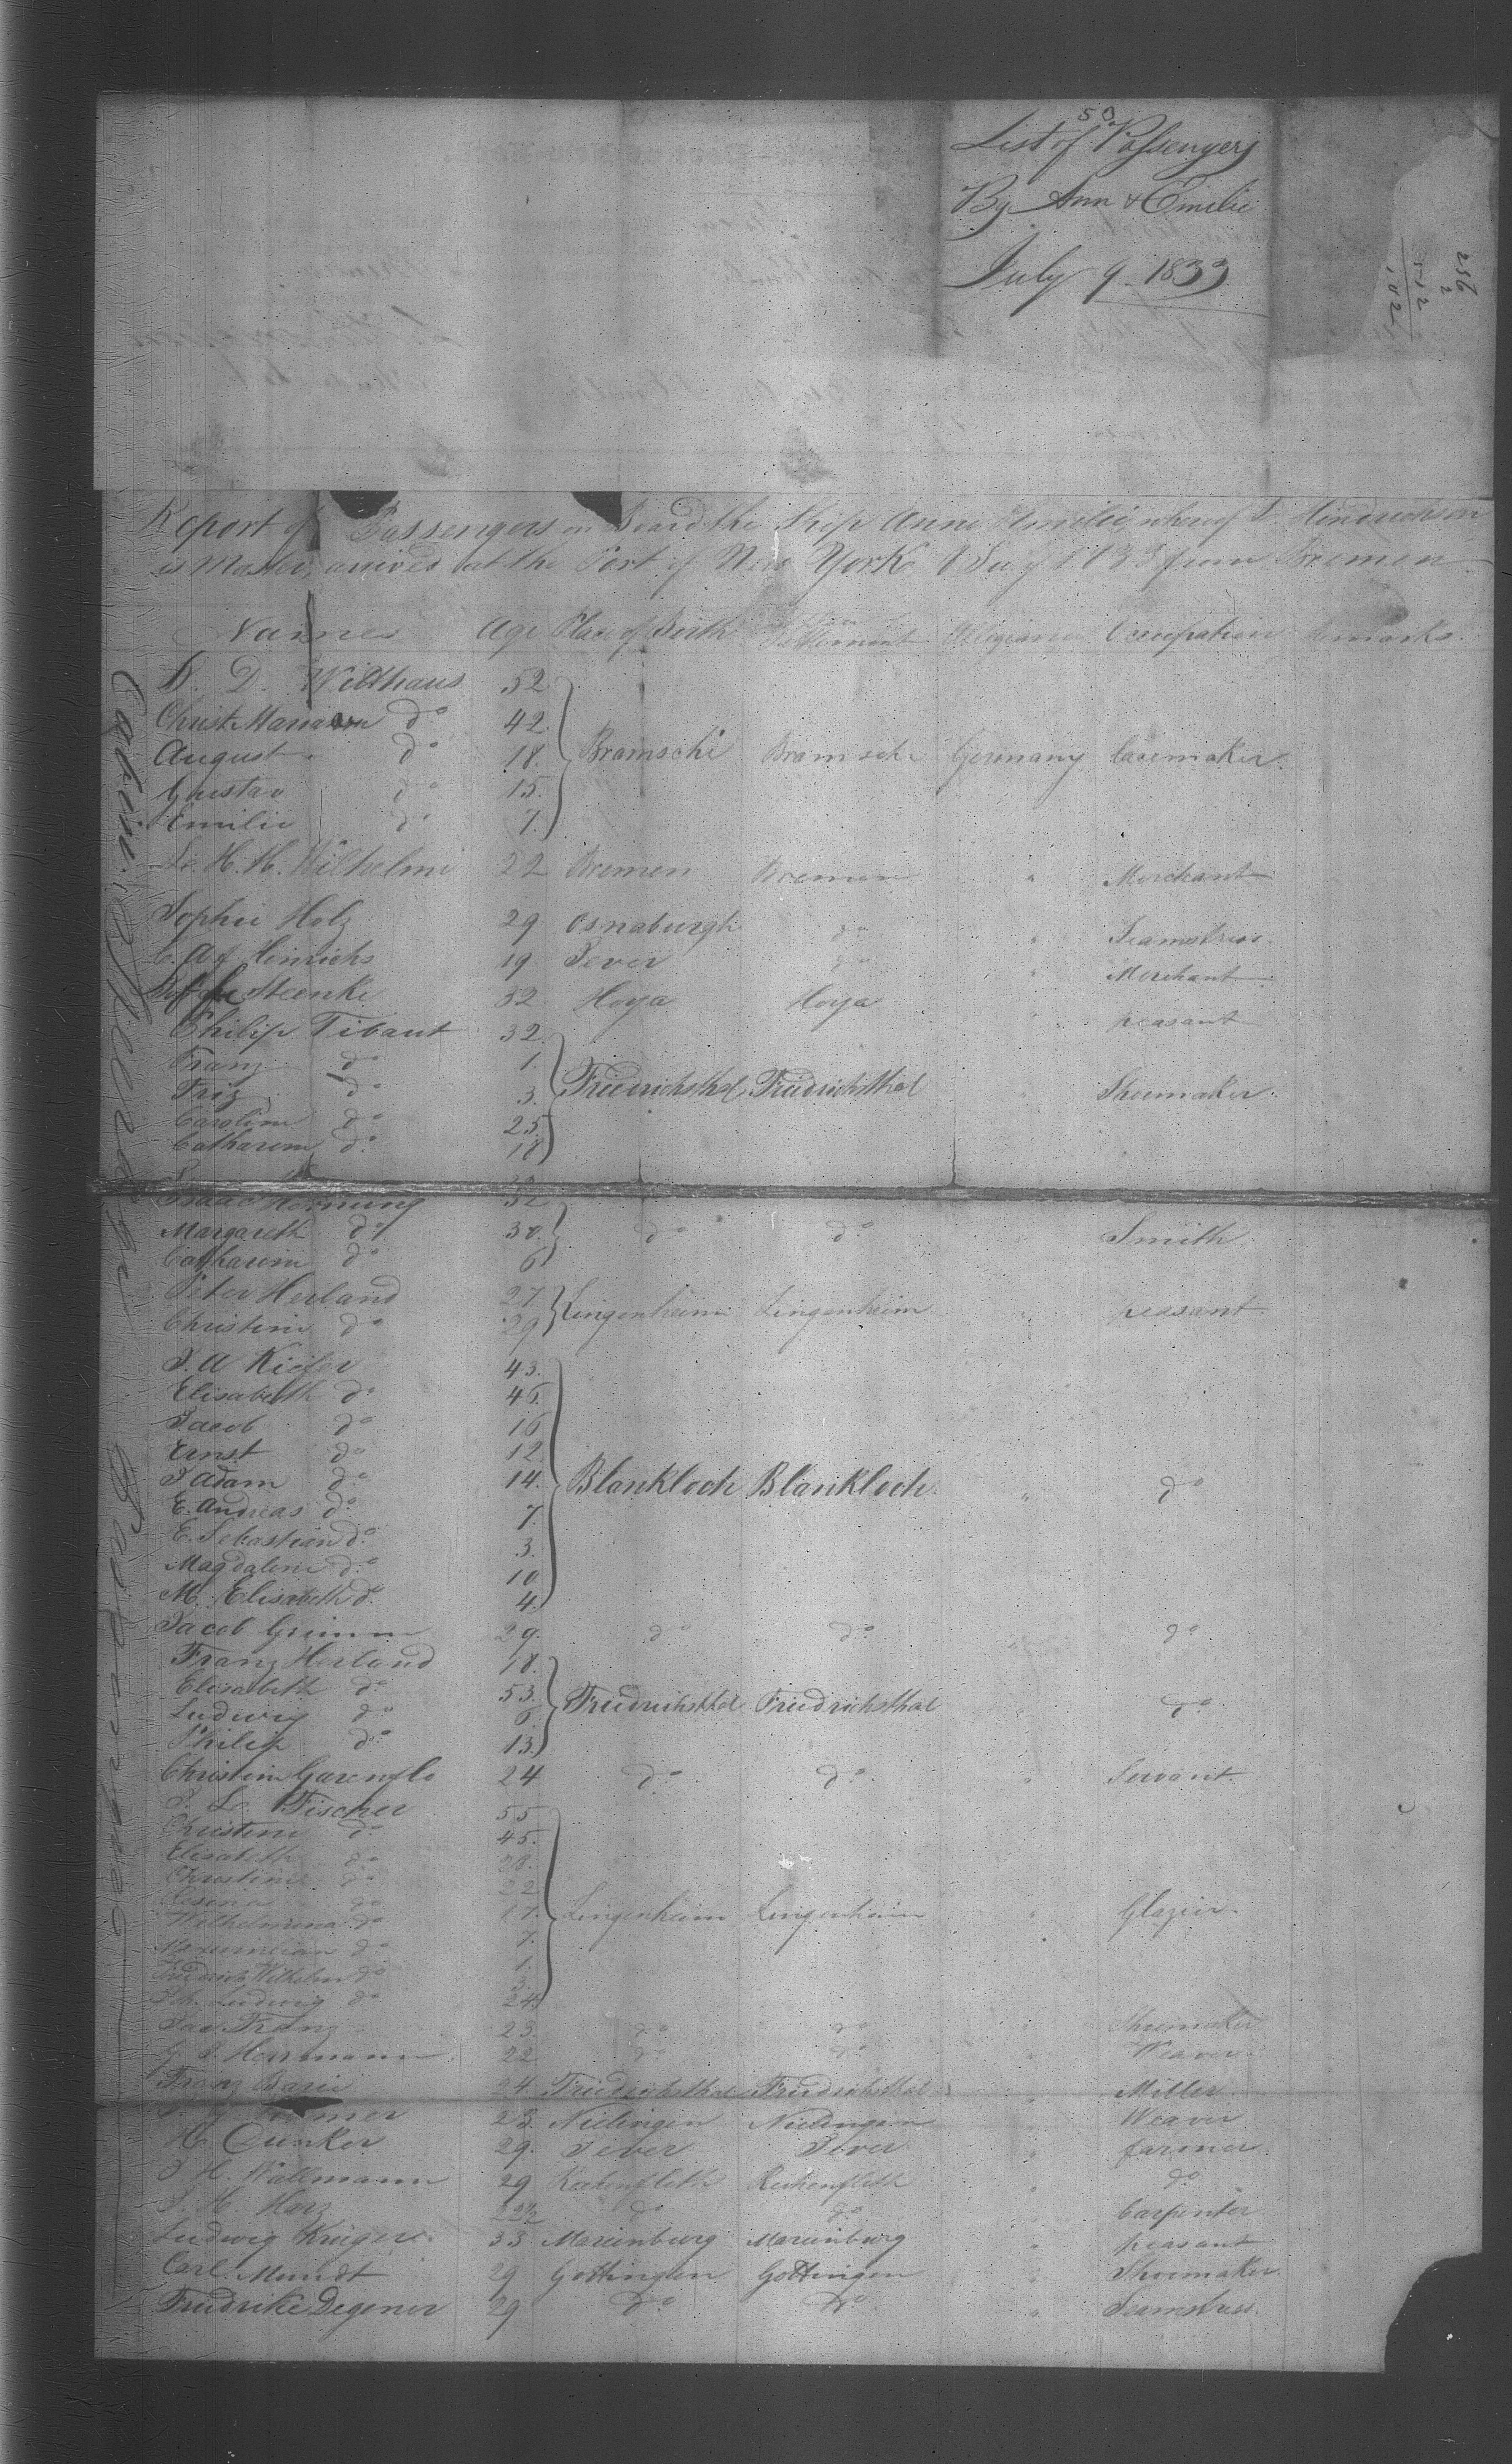 50
List of Passengers
By Ann & Emilie
July 9 1833
256
2
512
Report of Passengers on Board the Ship Anna Emilie whereof Hindrichson
is Master, arrived at the Port of New York July 1833 from Bremen
Names Age Place of Birth Settlement Allegiance Occupation Remarks.
D. Witthaus 52
Christ. Maria do 42
August do 18. Bramsche Bramsche Germany Lacemaker.
Gustav do 15.
Emilie do 7.
L. H. H. Wilhelmi 22 Bremen Bremen " Merchant
Sophie Holz 29 Osnaburgh do " Seamstress.
Hinrichs 19. Jever do " Merchant
Steenke 52 Hoya Hoya " peasant
Philip Tibaut 32.
Franz do 1.
Friz do 3. Friedrichsthal Friedrichsthal " Shoemaker.
Caroline do 25.
Catharine do 18
Isaac Hornung 32
Margareth do 30. do do " Smith
Catharine do 6
Peter Herland 27
Christine do 29 Lingenheim Lingenheim " peasant.
J. A Kiefer 43.
Elisabeth do 45.
Jacob do 16
Ernst do 12
J Adam do 14. Blankloch Blankloch " do
E. Andreas do 7.
E. Sebastian do 3.
Magdalene do 10
M. Elisabeth do 4.
Jacob Grimm 29. do do " do
Franz Herland 18.
Elisabeth do 53. Friedrichsthal Friedrichsthal do
Ludwig do 6.
Philip do 13.
Christine Garenflo 24 do do " Servant.
J. L. Fischer 55
Christine do 45.
Elisabeth do 28.
Christine do 22
Rosena do 17. Lingenheim Lingenheim " Glazier.
Wilhelmina do 7.
Maximilian do 1.
Friedrich Wilhelm do 3.
Ludwig do 24.
Franz 23. do do " Shoemaker
Herrmann 22 do do " Weaver.
Franz Barie 24. Friedrichsthal Friedrichsthal " Miller.
23. Nielingen Nielingen " Weaver
H. Cunker 29. Jever Jever " farmer.
J H. Wallmann 29 Rechenfleth Rechenfleth " do
J. H. Harz 22½ do do " Carpenter
Ludwig Krüger 33 Marienburg Marienburg " peasant
Carl Mundt 29 Gottingen Gottingen " Shoemaker.
Friedrike Degener 29 do do " Seamstress.